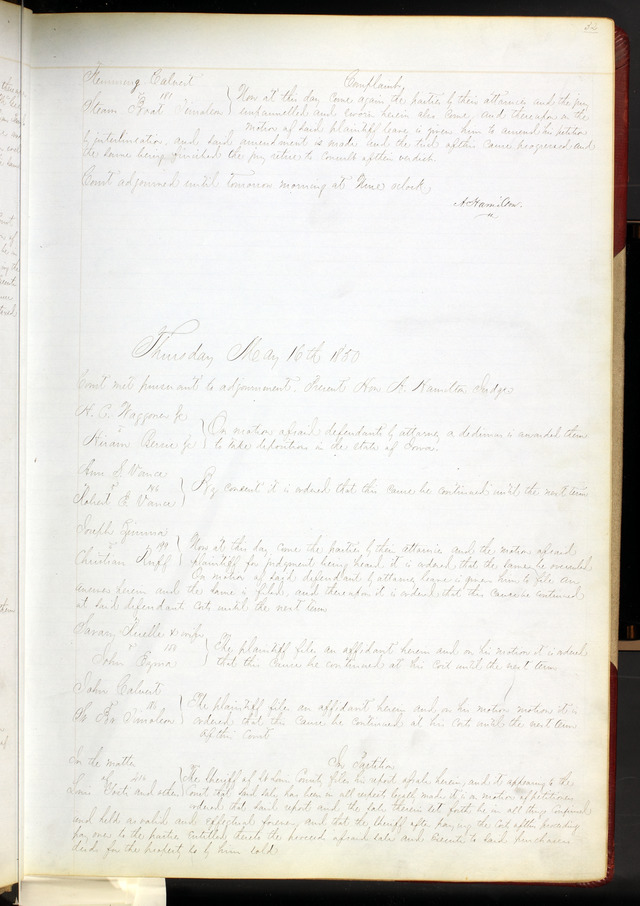 Flemming Calvert Complaint
vs Now at this day come again the parties by their attornies and the jury
Steam Boat Timoleon empannelled and sworn herein also come, and thereupon on the
motion of said plaintiff leave is given him to amend his petition
by interlineation, and said amendment is made and the trial of this cause progressed and
the same being finished the jury retire to consult of their verdict.
Court adjourned until tomorrow morning at Nine oclock
A. Hamilton
Thursday May 16th 1850
Court met pursuant to adjournment. Present Hon A. Hamilton Judge
H. C. Waggoner Jr
v On motion of said defendants by attorney a dedimus is awarded them
Hiram Jr to take depositions in the State of Iowa.
S. Vance
v By consent it is ordered that this cause be continued until the next term
Robert E Vance
Joseph
v 199 Now at this day come the parties by their attornies and the motion of said
Christian Ruff plaintiff for judgment being heard it is ordered that the same be overruled
On motion of said defendant by attorney leave is given him to file an
answer herein and the same is filed, and thereupon it is ordered that this cause be continued
at said defendants cost until the next term
& wife
v The plaintiff files an affidavit herein and on his motion it is ordered
John that this cause be continued at his cost until the next term
John Calvert
v The plaintiff files an affidavit herein and on his motion motion it is
St. Bt. Timoleon ordered that this cause be continued at his costs until the next term
of this Court
In the matter In Partition
of The Sheriff of St Louis County files his report of sale herein, and it appearing to the
and others Court that said sale has been in all respects legally made it is on motion of petitioners
ordered that said report and the sale therein set forth be in all things confirmed
and held as valid and effectual forever, and that the sheriff after paying the cost of this proceeding
pay over to the parties entitled thereto the proceeds of said sales and execute to said purchasers
deeds for the property so by him sold